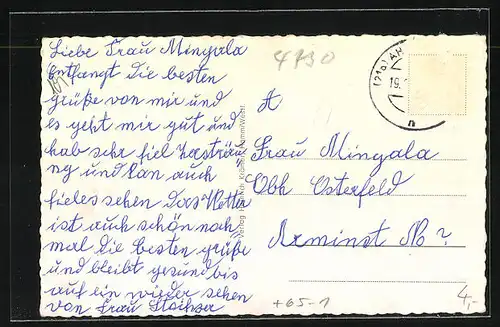 Liebe Frau Mingala
Entfangt Die besten
grüße von mir und
es geht mir gut und
hab sehr fiel Zersträu
ng und kan auch
fieles sehen Das Wetter
ist auch schön noch
mal Die besten grüße
und bleibt gesund bis
auf ein wieder sehen
von Frau
4790
(21a) AH
19.
n
A
Frau Mingala
Obh Osterfeld
Arminst No ?
Verlag
+65-1
4,-